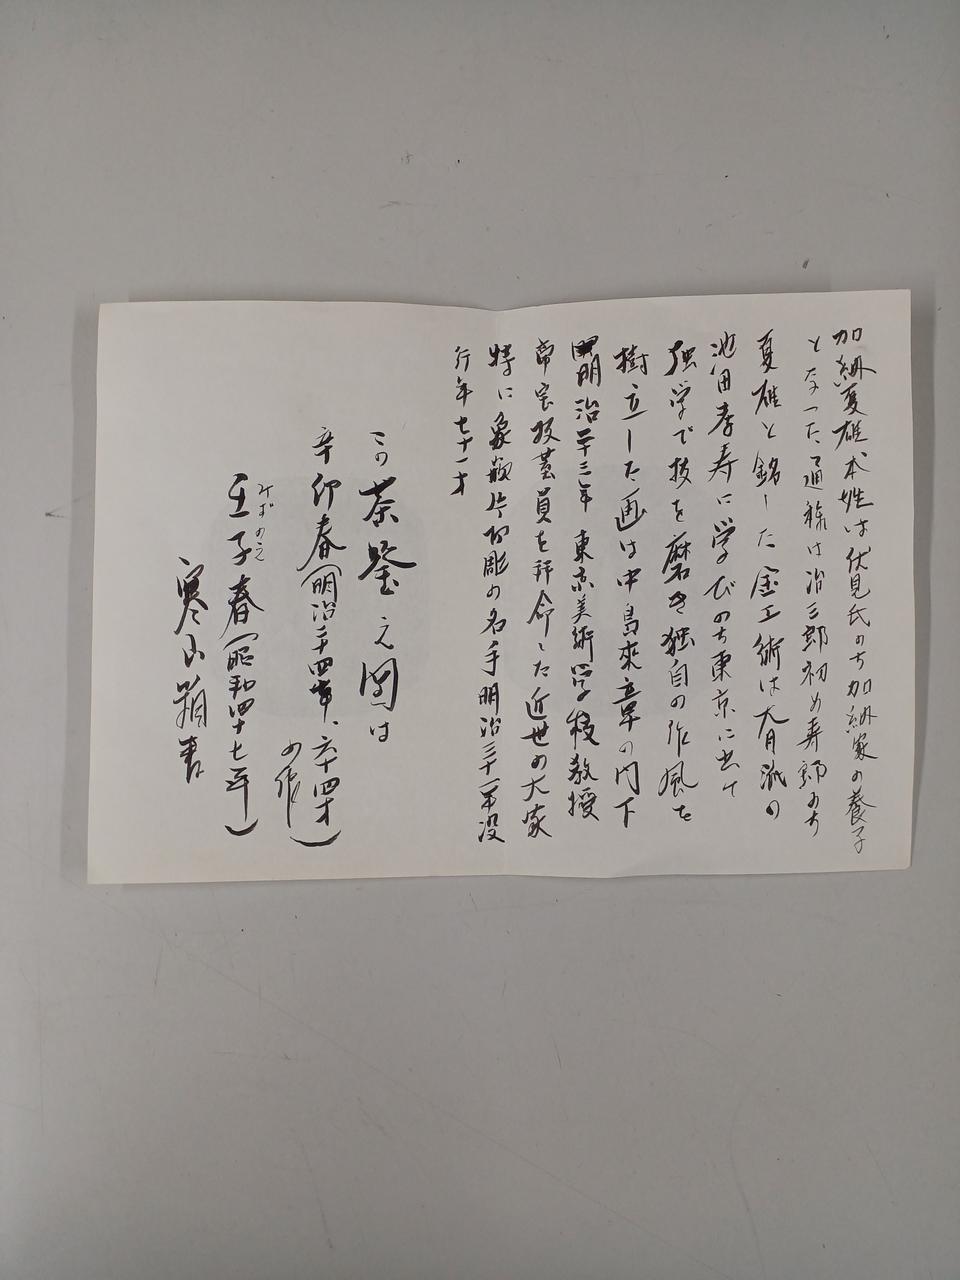 加納夏雄本姓は伏見氏のち加納家の養子
となった、通称は治三郎初め寿朗のち
夏雄と銘した金工術は大月派の
池田孝寿に学びのち東京に出て
独学で技を磨き独自の作風を
樹立した画は中島来章の門下
明治二十三年東京美術学校教授
帝室技芸員を拝命した近世の大家
特に象嵌片切彫の名手明治三十一年没
行年七十一才
この茶 之図は
辛卯春(明治二十四年、六十四才
の作)
みずのえ
壬子春(昭和四十七年)
寒山 書